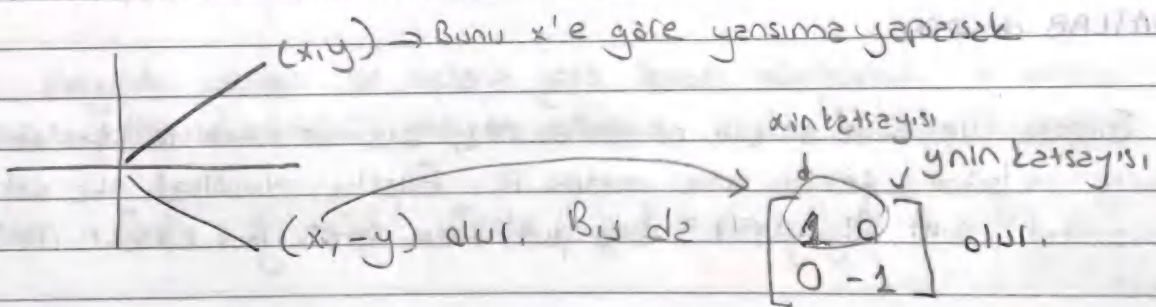 (x,y) → Bunu x'e göre yansıma yaparsak
xin katsayısı
ynin katsayısı
(x,-y) olur. Bu da [1 0
0 -1] olur.